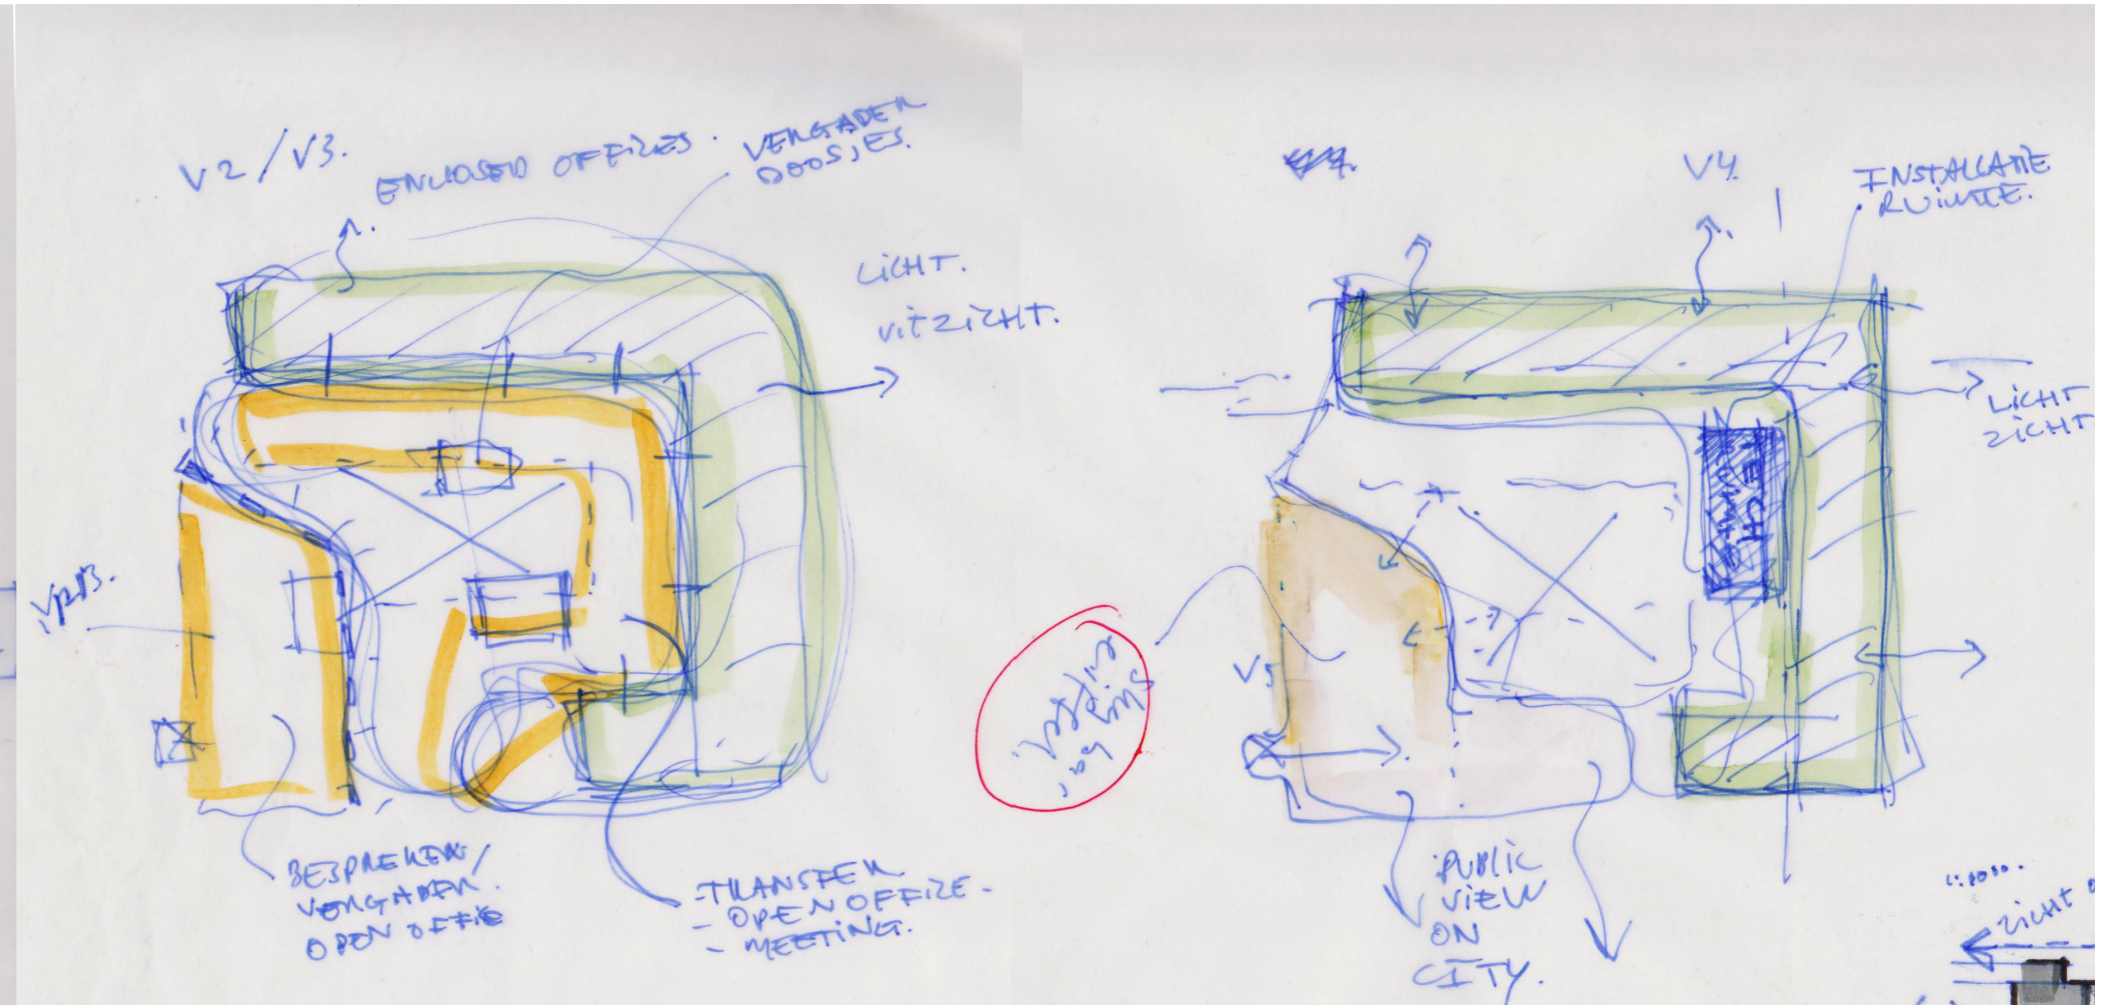 V2/V3.
ENCLOSED OFFICES.
VERGADER
DOOSJES.
LICHT.
UITZICHT.
BESPREKEN/
VERGADER.
OPEN OFFIC
- TRANSFER
- OPEN OFFICE -
- MEETING.
V4.
INSTALLATIE
RUIMTE.
LICHT
ZICHT
TECH
RUIMTE
V5
PUBLIC
VIEW
ON
CITY.
ZICHT O